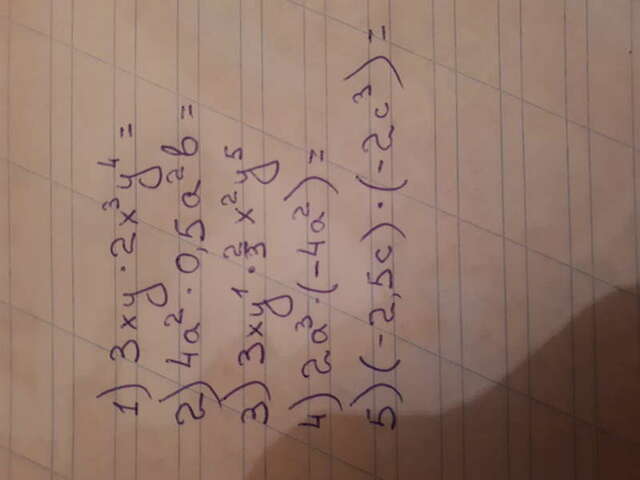 1) 3xy · 2x³y⁴ =
2) 4a² · 0,5a²b =
3) 3xy¹ · 2/3 x²y⁵
4) 2a³ · (-4a²) =
5) (-2,5c) · (-2c³) =